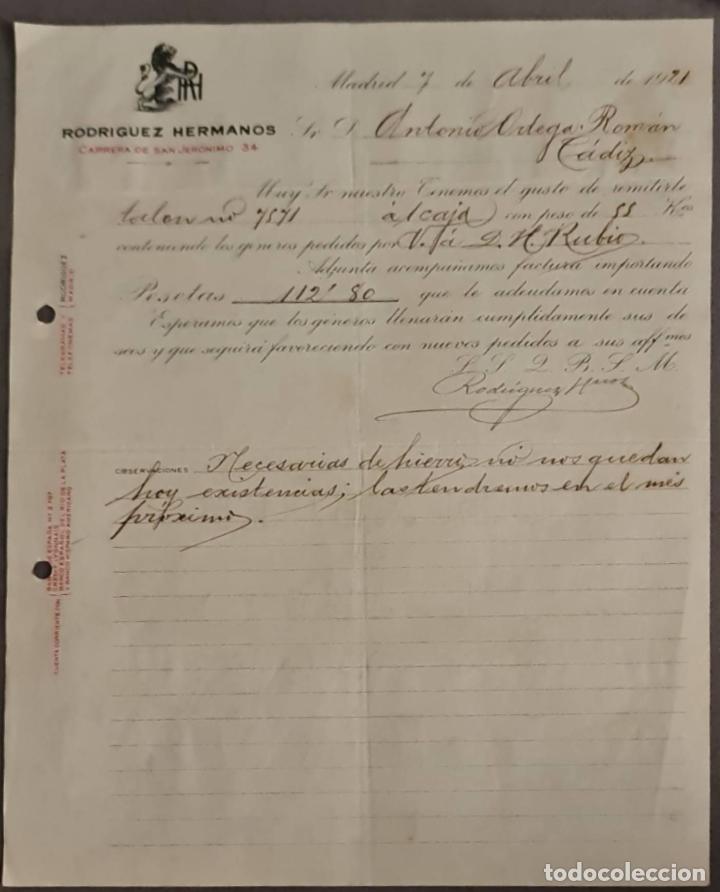 RH
RODRIGUEZ HERMANOS
CARRERA DE SAN JERÓNIMO 34
Madrid 7 de Abril de 1921
Sr. D. Antonio Ortega Román
Cádiz
Muy Sr. nuestro: Tenemos el gusto de remitirle
talon nº 7571 á 1 caja con peso de 55 Kos
conteniendo los géneros pedidos por V. á D. H. Rubio.
Adjunta acompañamos factura importando
Pesetas 112'80 que le adeudamos en cuenta
Esperamos que los géneros llenarán cumplidamente sus de
seos y que seguirá favoreciendo con nuevos pedidos a sus affmos
S. S. Q. B. S. M.
Rodríguez Hnos
OBSERVACIONES Necesarias de hierro, no nos quedan
hoy existencias; las tendremos en el més
próximo.
TELEGRAMAS Y TELEFONEMAS RODRIGUEZ MADRID
CUENTA CORRIENTE CON
BANCO DE ESPAÑA
CRÉDIT LYONNAIS
BANCO ESPAÑOL DEL RIO DE LA PLATA
Y BANCO HISPANO AMERICANO
todocoleccion